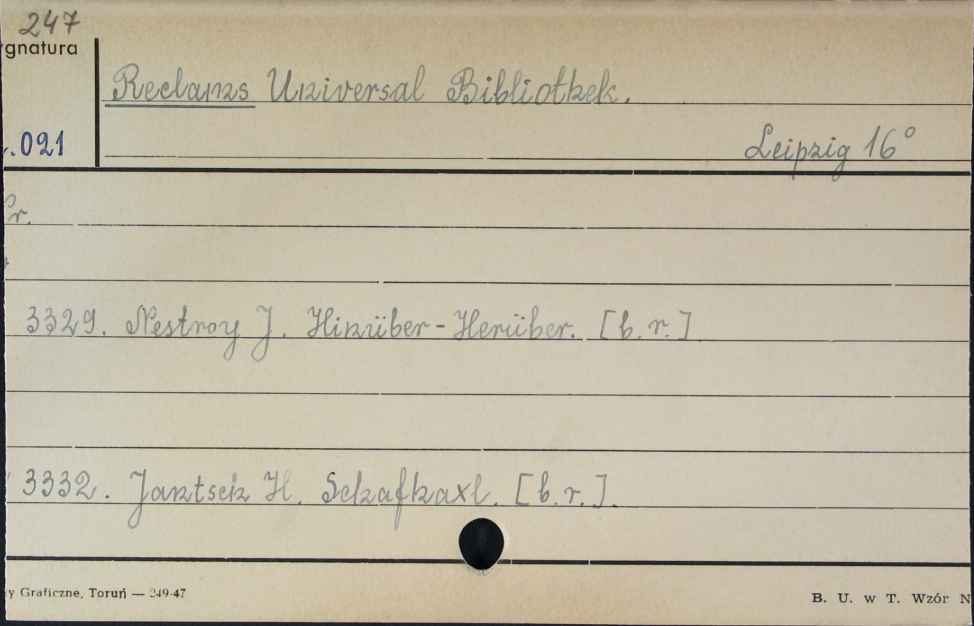 247
gnatura
Reclams Universal Bibliothek.
.021
Leipzig 16°
r.
3329. Nestroy J. Hinüber-Herüber. [b.r.]
3332. Jantsch H. Schafhaxl. [b.r.].
y Graficzne, Toruń — 249-47
B. U. w T. Wzór N